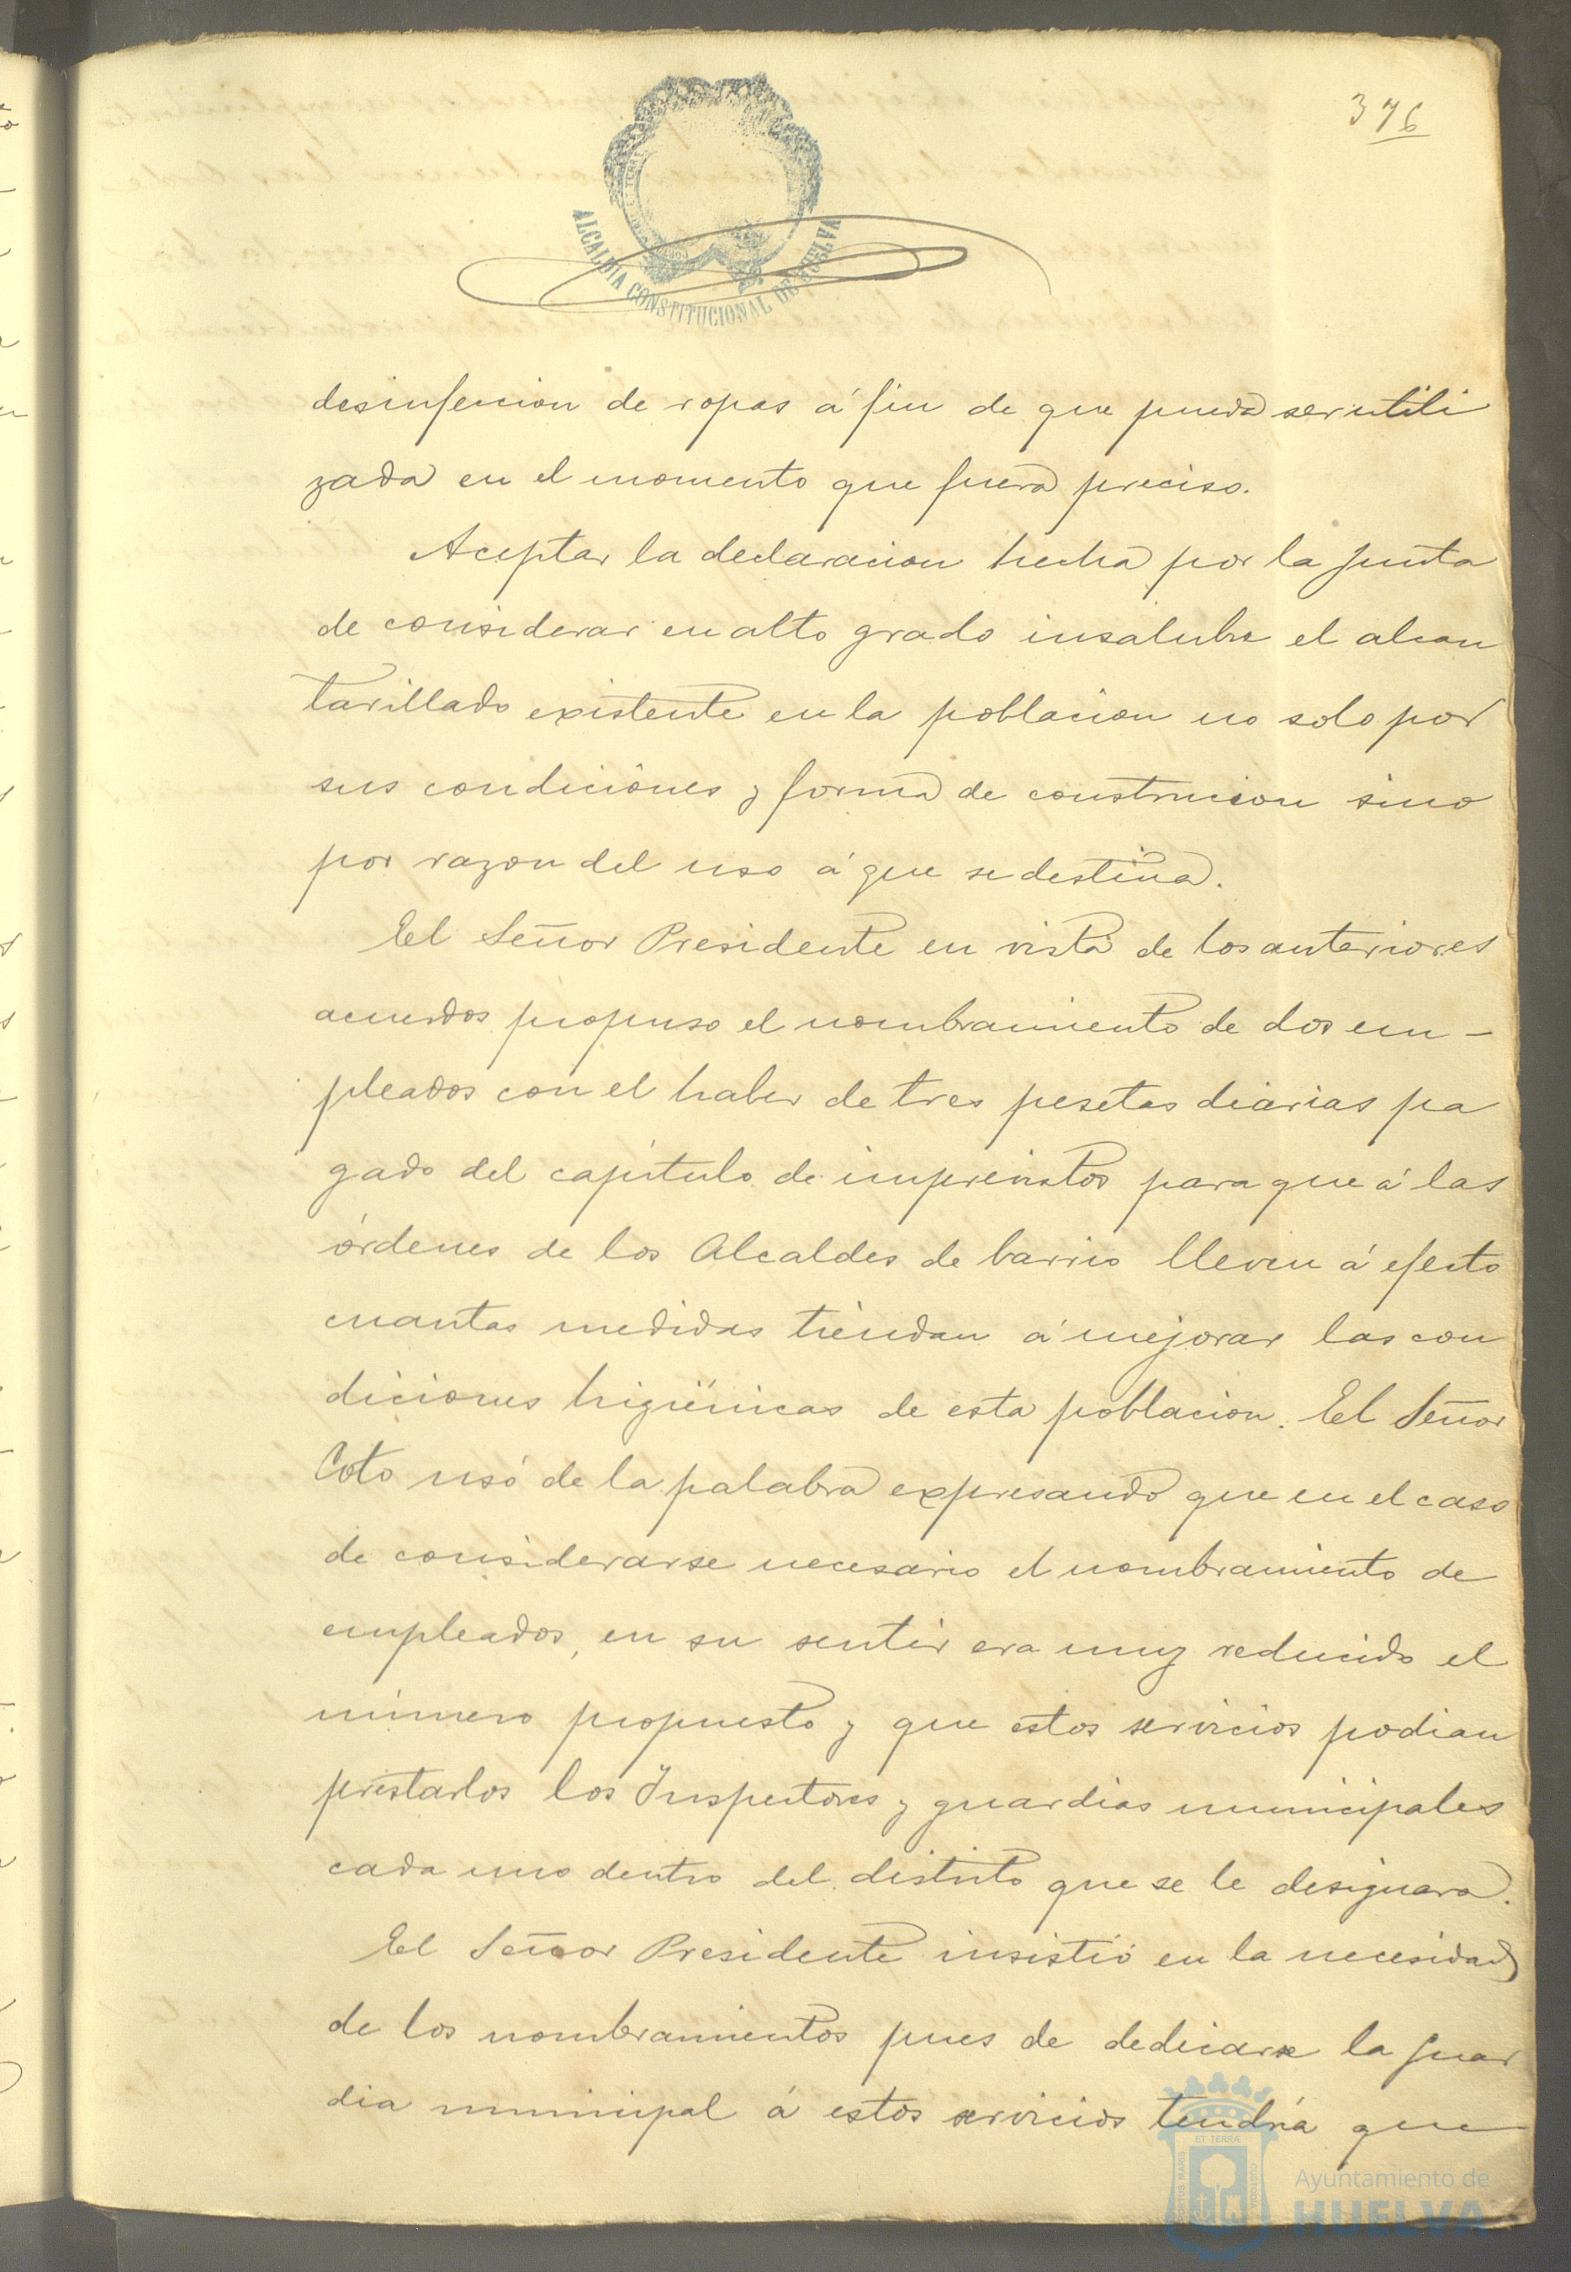 376
ALCALDIA CONSTITUCIONAL DE HUELVA
desinfeccion de ropas á fin de que pueda ser utili
zada en el momento que fuera preciso.
Aceptar la declaracion hecha por la Junta
de considerar en alto grado insalubre el alcan
tarillado existente en la poblacion no solo por
sus condiciones y forma de construcion sino
por razon del uso á que se destina.
El Señor Presidente en vista de los anteriores
acuerdos propuso el nombramiento de dos em-
pleados con el haber de tres pesetas diarias pa
gado del capítulo de imprevistos para que á las
órdenes de los Alcaldes de barrio lleven á efecto
cuantas medidas tiendan á mejorar las con
diciones higiénicas de esta poblacion. El Señor
Coto usó de la palabra expresando que en el caso
de considerarse necesario el nombramiento de
empleados, en su sentir era muy reducido el
número propuesto y que estos servicios podian
prestarlos los Inspectores y guardias municipales
cada uno dentro del distrito que se le designara.
El Señor Presidente insistió en la necesidad
de los nombramientos pues de dedicarse la guar
dia municipal á estos servicios tendría que
PORTUS MARIS ET TERRÆ CUSTODIA
Ayuntamiento de
HUELVA